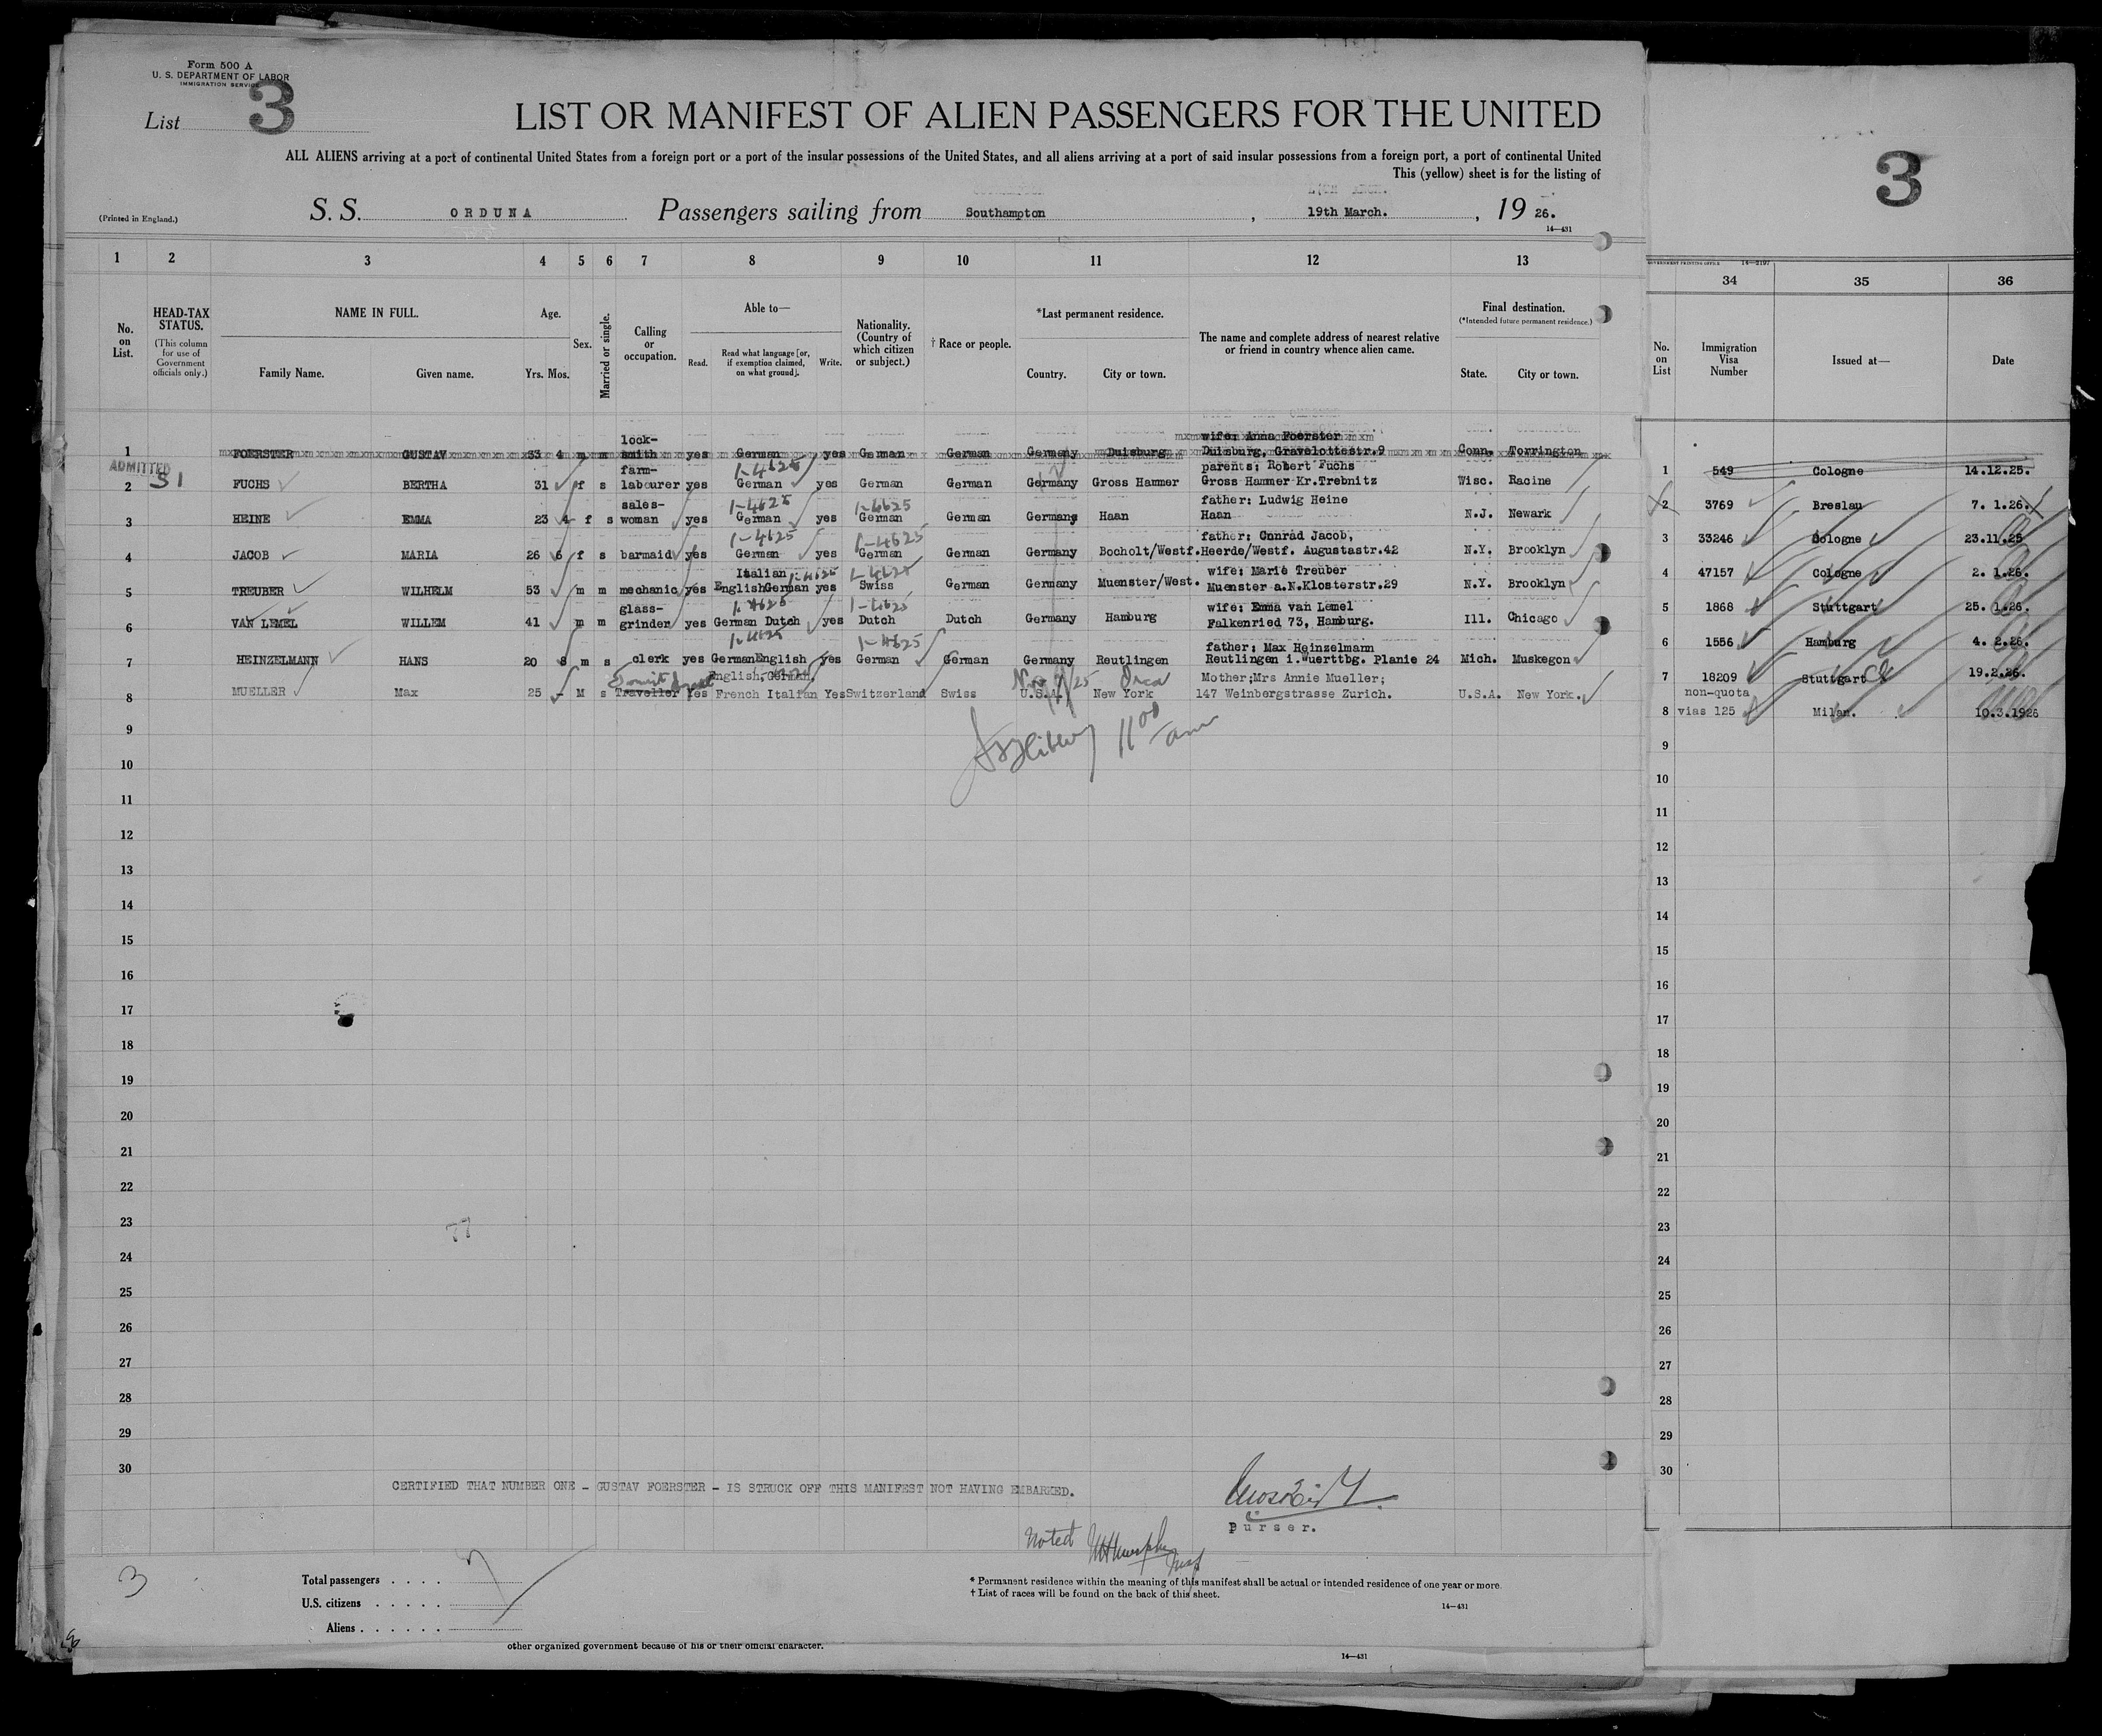 Form 500 A
U. S. DEPARTMENT OF LABOR
IMMIGRATION SERVICE
List 3
LIST OR MANIFEST OF ALIEN PASSENGERS FOR THE UNITED
ALL ALIENS arriving at a port of continental United States from a foreign port or a port of the insular possessions of the United States, and all aliens arriving at a port of said insular possessions from a foreign port, a port of continental United
This (yellow) sheet is for the listing of
3
(Printed in England.)
S. S. ORDUNA Passengers sailing from Southampton , 19th March. , 19 26.
14—431
1 2 3 4 5 6 7 8 9 10 11 12 13
No. on List.
HEAD-TAX STATUS.
(This column for use of Government officials only.)
NAME IN FULL.
Family Name. Given name.
Age.
Yrs. Mos.
Sex.
Married or single.
Calling or occupation.
Able to—
Read. Read what language [or, if exemption claimed, on what ground]. Write.
Nationality. (Country of which citizen or subject.)
† Race or people.
*Last permanent residence.
Country. City or town.
The name and complete address of nearest relative or friend in country whence alien came.
Final destination.
(*Intended future permanent residence.)
State. City or town.
GOVERNMENT PRINTING OFFICE 14—2197
34 35 36
No. on List
Immigration Visa Number
Issued at—
Date
lock- wife: Anna Foerster
1 FOERSTER GUSTAV 33 4 m m smith yes German yes German German Germany Duisburg Duisburg, Gravelottestr.9 Conn. Torrington
ADMITTED 31 farm- 1-4625 parents; Robert Fuchs
2 FUCHS BERTHA 31 f s labourer yes German yes German German Germany Gross Hammer Gross Hammer Kr.Trebnitz Wisc. Racine
sales- 1-4625 1-4625 father: Ludwig Heine
3 HEINE EMMA 23 4 f s woman yes German yes German German Germany Haan Haan N.J. Newark
1-4625 1-4625 father: Conrad Jacob,
4 JACOB MARIA 26 6 f s barmaid yes German yes German German Germany Bocholt/Westf. Heerde/Westf. Augustastr.42 N.Y. Brooklyn
Italian 1-4625 1-4625 wife: Marie Treuber
5 TREUBER WILHELM 53 m m mechanic yes English German yes Swiss German Germany Muenster/West. Muenster a.N.Klosterstr.29 N.Y. Brooklyn
glass- 1-4625 1-4625 wife: Emma van Lemel
6 VAN LEMEL WILLEM 41 m m grinder yes German Dutch yes Dutch Dutch Germany Hamburg Falkenried 73, Hamburg. Ill. Chicago
1-4625 1-4625 father; Max Heinzelmann
7 HEINZELMANN HANS 20 8 m s clerk yes German English yes German German Germany Reutlingen Reutlingen i.Wuerttbg. Planie 24 Mich. Muskegon
English, German, Mother;Mrs Annie Mueller;
8 MUELLER Max 25 - M s Traveller Yes French Italian Yes Switzerland Swiss U.S.A. New York 147 Weinbergstrasse Zurich. U.S.A. New York.
11 00 am
1 549 Cologne 14.12.25.
2 3769 Breslau 7. 1.26.
3 33246 Cologne 23.11.25
4 47157 Cologne 2. 1.26.
5 1868 Stuttgart 25. 1.26.
6 1556 Hamburg 4. 2.26.
7 18209 Stuttgart 19.2.26.
non-quota
8 vias 125 Milan. 10.3.1926
9 9
10 10
11 11
12 12
13 13
14 14
15 15
16 16
17 17
18 18
19 19
20 20
21 21
22 22
23 77 23
24 24
25 25
26 26
27 27
28 28
29 29
30 30
CERTIFIED THAT NUMBER ONE - GUSTAV FOERSTER - IS STRUCK OFF THIS MANIFEST NOT HAVING EMBARKED.
Purser.
Noted
3
Total passengers . . . . 7
U.S. citizens . . . . .
Aliens . . . . . .
* Permanent residence within the meaning of this manifest shall be actual or intended residence of one year or more.
† List of races will be found on the back of this sheet.
14—431
other organized government because of his or their official character.
14—431